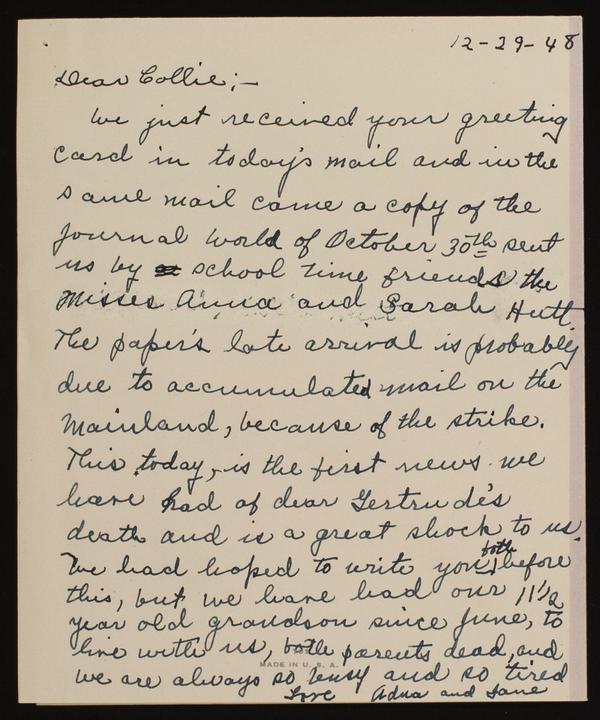 12-29-48
Dear Collie;-
We just received your greeting
card in today's mail and in the
same mail came a copy of the
Journal World of October 30th sent
us by school time friends the
Misses Anna and Sarah Hutt.
The paper's late arrival is probably
due to accumulated mail on the
Mainland, because of the strike.
This today, is the first news we
have had of dear Gertrude's
death and is a great shock to us.
We had hoped to write you both before
this, but we have had our 11½
year old grandson since June, to
live with us, both parents dead, and
MADE IN U. S. A.
we are always so busy and so tired
Love Adna and Jane